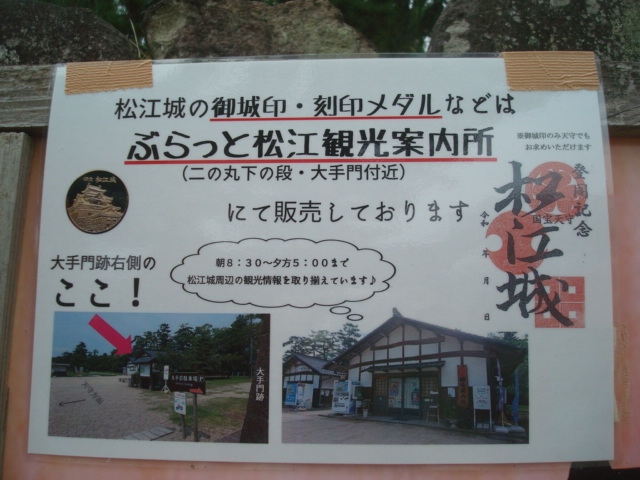 松江城の御城印・刻印メダルなどは
ぶらっと松江観光案内所
(二の丸下の段・大手門付近)
にて販売しております
※御城印のみ天守でも
お求めいただけます
登閣記念
国宝天守
松江城
令和 年 月 日
松江城
大手門跡右側の
ここ！
朝8：30～夕方5：00まで
松江城周辺の観光情報を取り揃えています♪
大手門跡